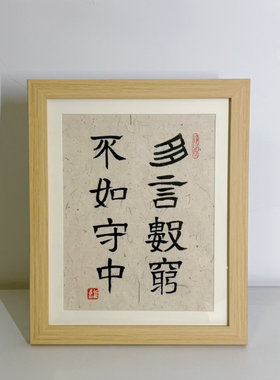 多言數窮
不如守中